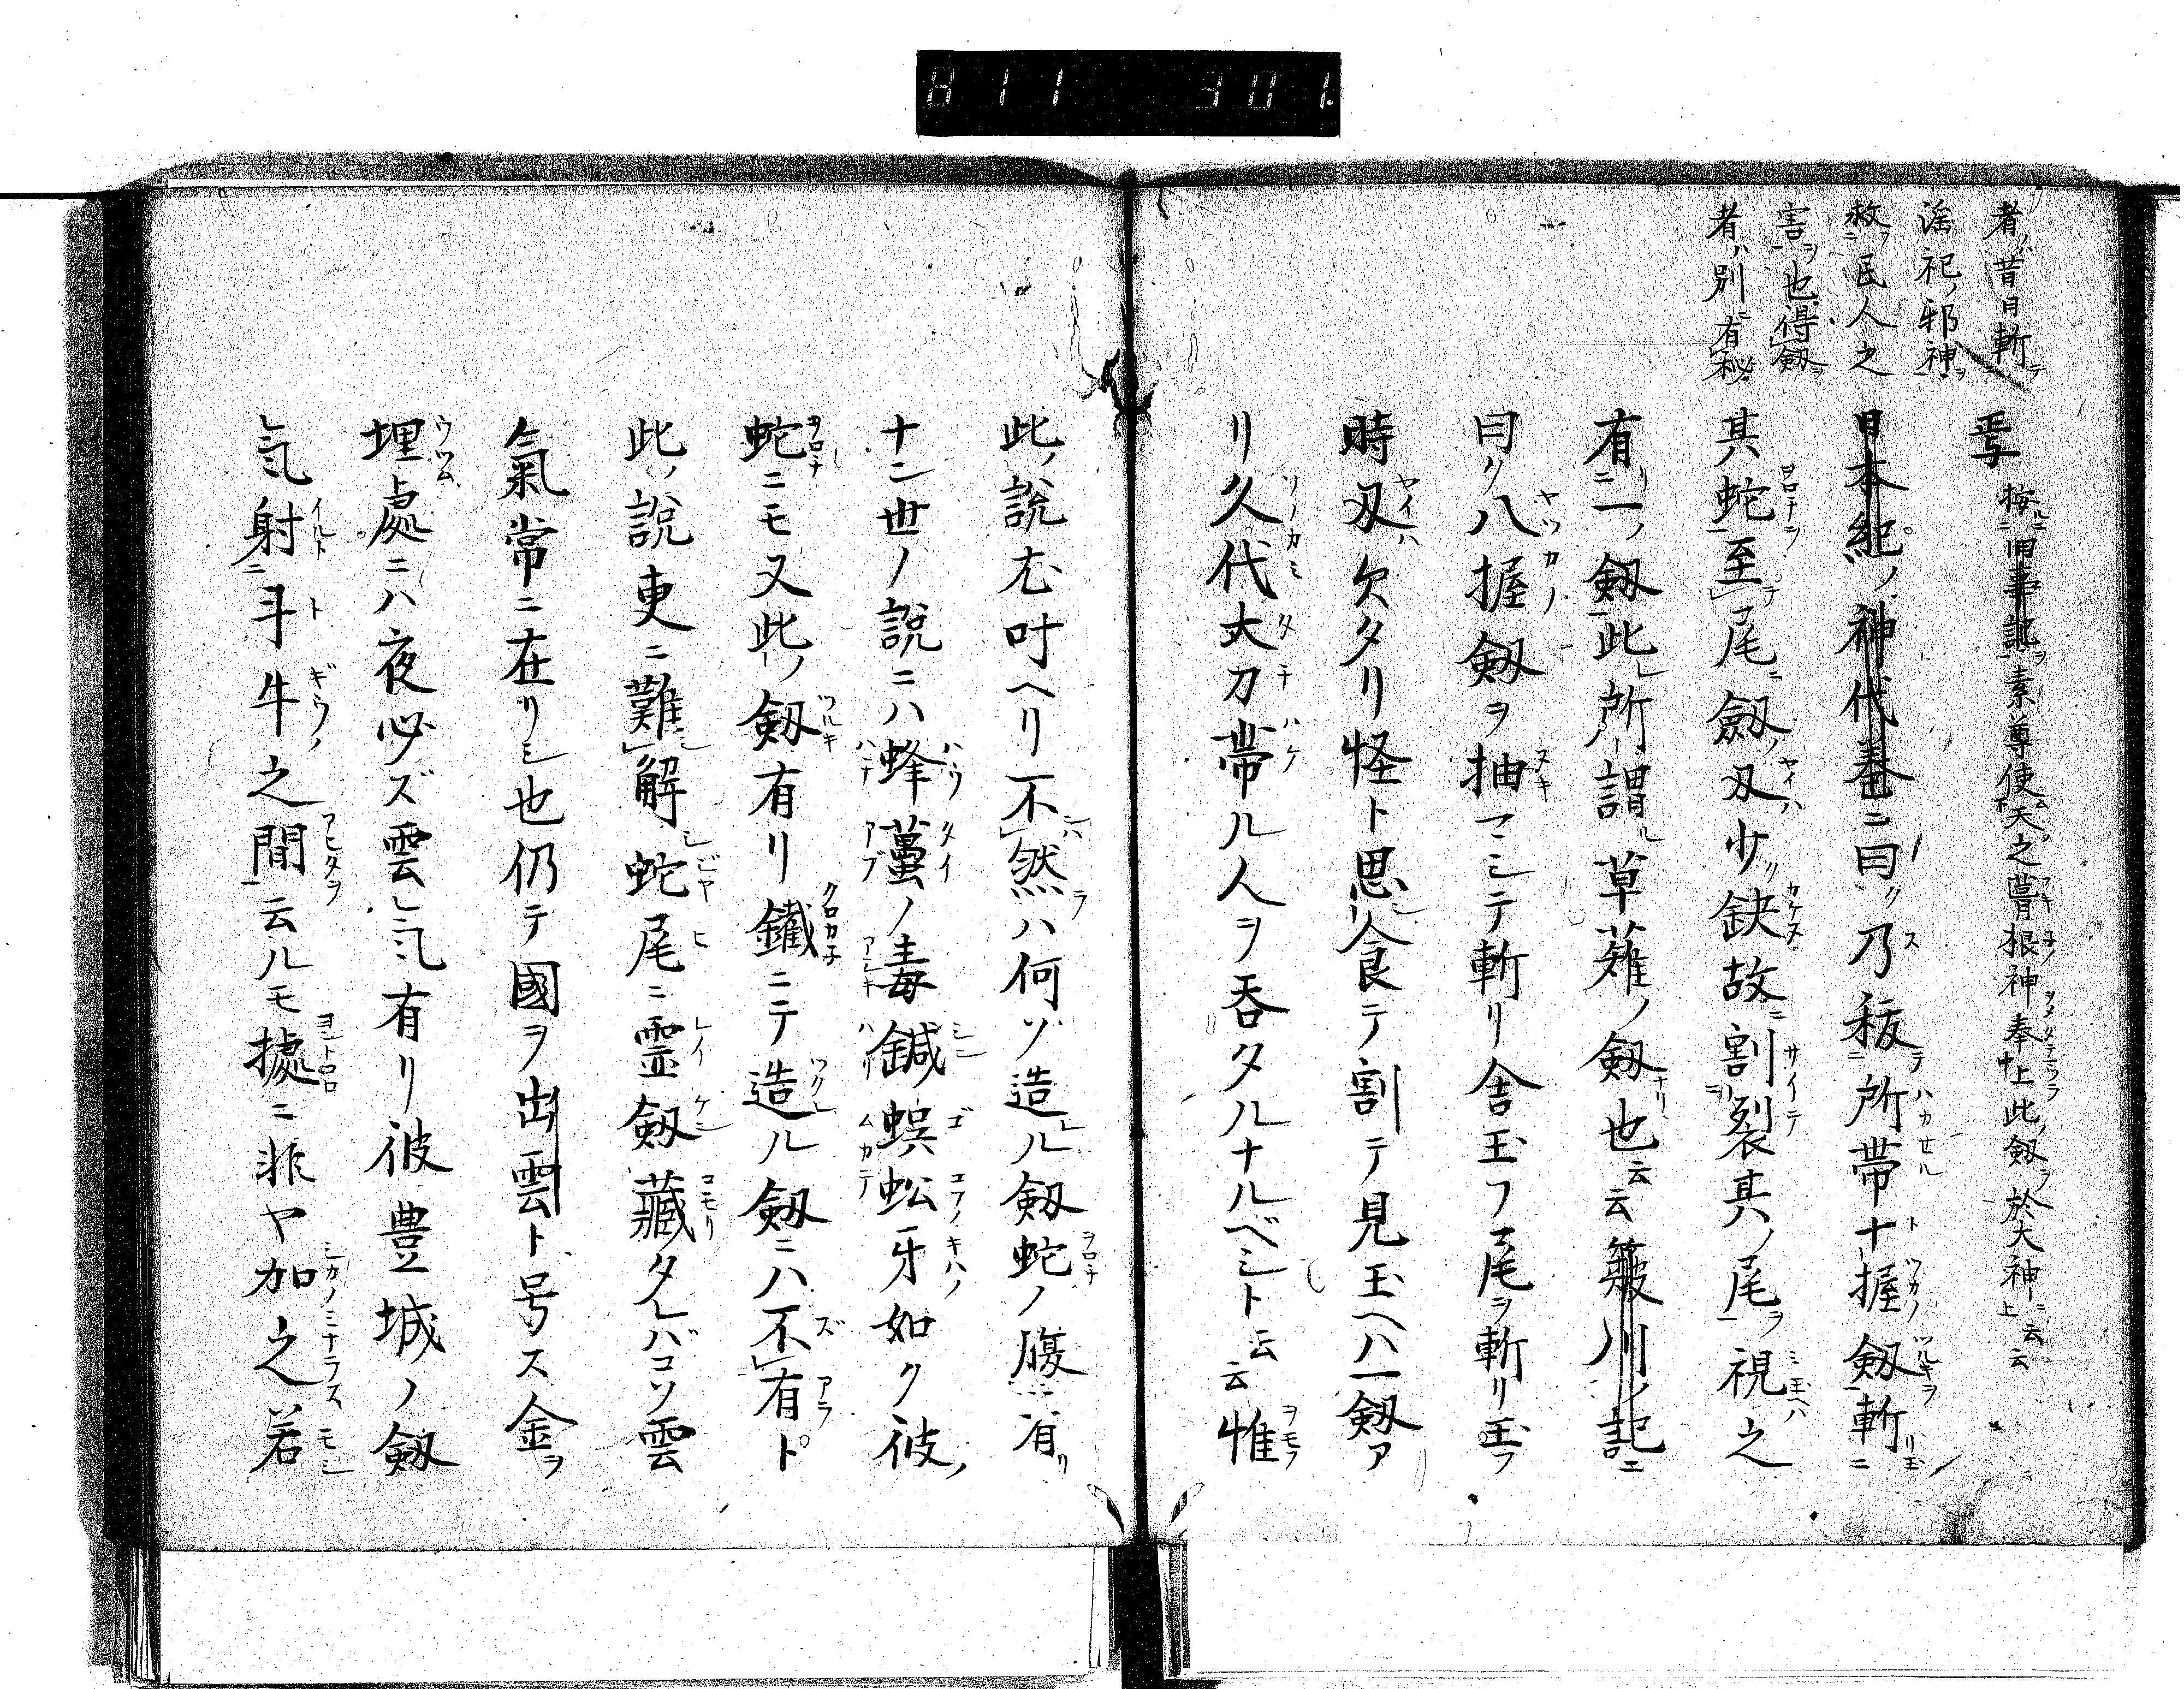 811 301.
者ハ昔日斬テ
淫祀ノ邪神ヲ
救フ民人之
害ヲ也得劔ヲ
者ハ別ニ有秘
按ルニ旧事記ヲ素尊使天之葺根神奉上此ノ劔ヲ於大神ニ云云
日本紀ノ神代巻ニ曰ク乃移テ所帯十握劔斬ニ
其蛇至テ尾ニ劔ノ刄少リ鈌故ニ割裂其ノ尾ヲ視之
有リ一ノ劔此レ所謂ル草薙ノ劔也云云簸川ノ記ニ
曰ク八握劔ヲ抽マシテ斬リ舎玉フ尾ヲ斬リ玉フ
時刄欠タリ怪ト思食テ割テ見玉ヘハ一劔ア
リ久代大刀帯ル人ヲ呑タルナルベシト云云惟
此ノ説尤叶ヘリ不然ハ何ゾ造ル劔蛇ノ腹ニ有リ
十二世ノ説ニハ蜂蠆ノ毒鍼蜈蚣牙如ク彼ノ
蛇ニモ又此ノ劔有リ鐵ニテ造ル劔ニハ不有ト
此ノ説更ニ難シ解シ蛇尾ニ霊劔藏タレバコソ雲
氣常ニ在リシ也仍テ國ヲ出雲ト号ス金ヲ
埋處ニハ夜必ズ雲気有リ彼豊城ノ劔
気射斗牛之間云ルモ據ニ非ヤ加之若